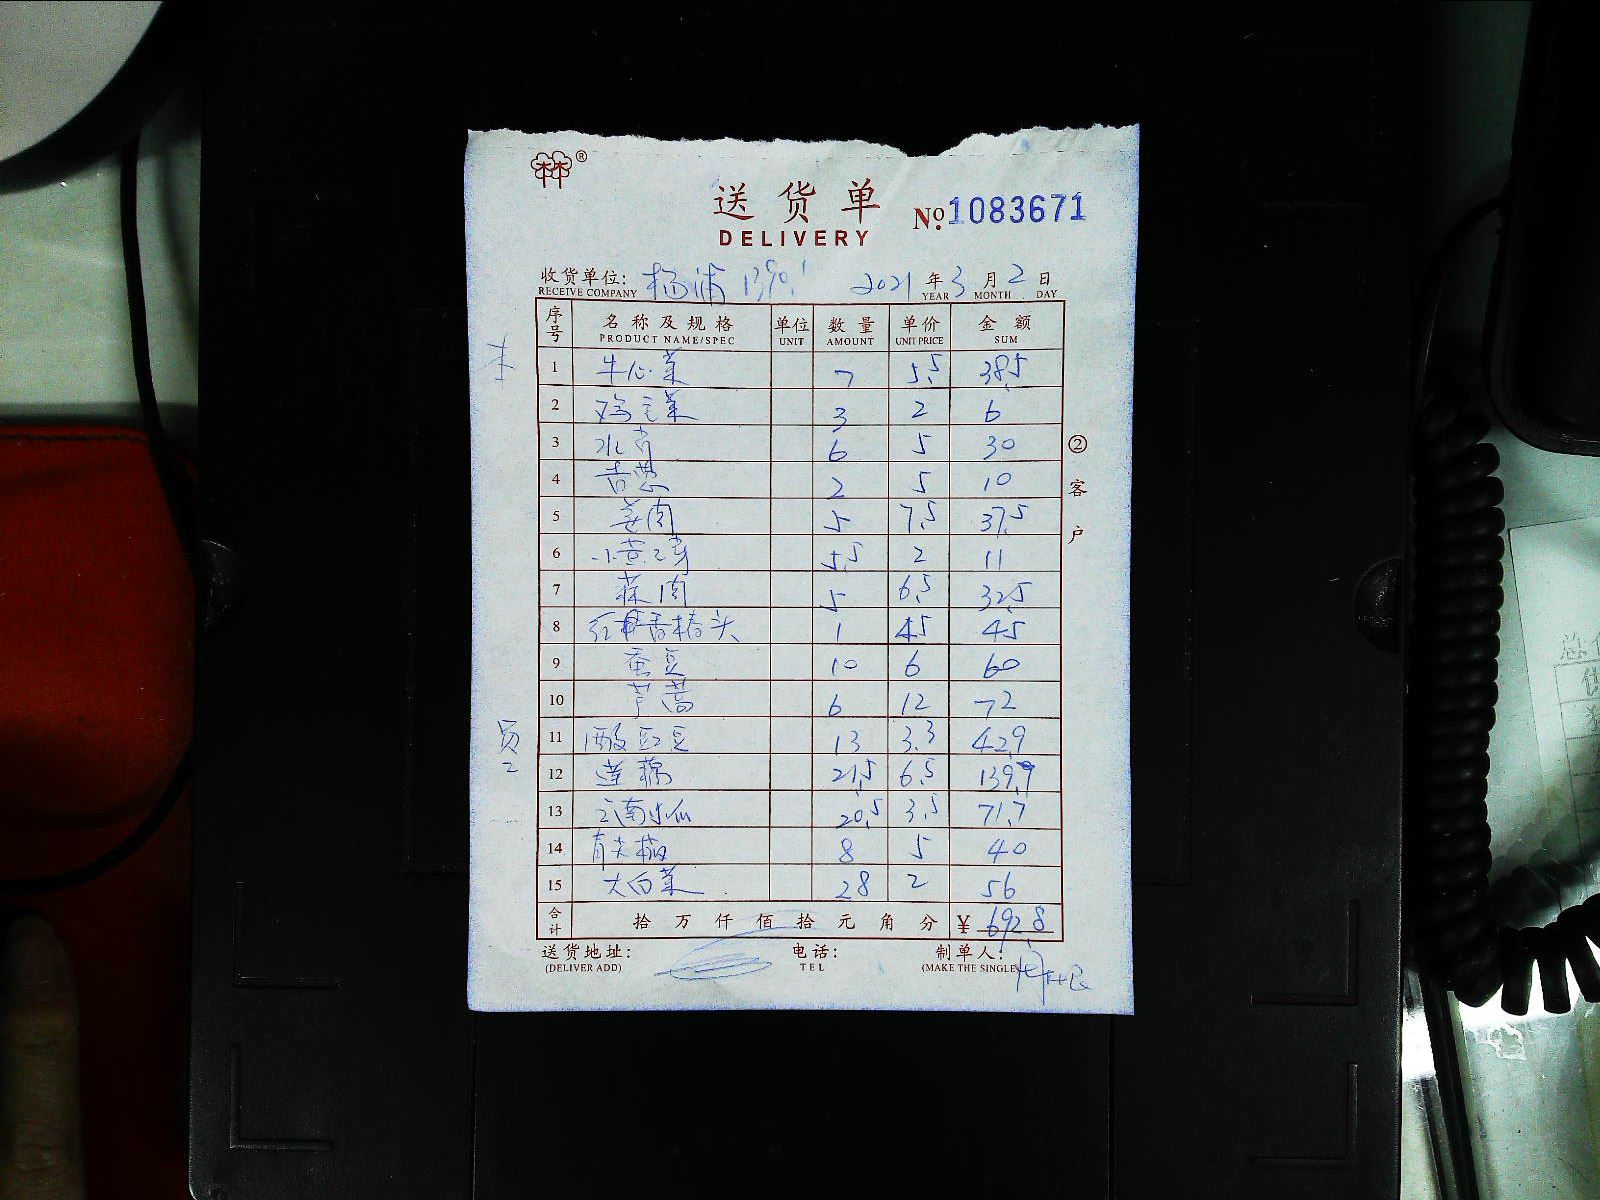 ®
送 货 单
DELIVERY
№ 1083671
收货单位: 杨浦 2021 年 3 月 2 日
RECEIVE COMPANY YEAR MONTH DAY
序号 名 称 及 规 格 单位 数 量 单价 金 额
PRODUCT NAME/SPEC UNIT AMOUNT UNIT PRICE SUM
1 牛心菜 7 5.5 38.5
2 鸡毛菜 3 2 6
3 水芹 6 5 30
4 香葱 2 5 10
5 姜肉 5 7.5 37.5
6 小黄芽 5.5 2 11
7 蒜肉 5 6.5 32.5
8 香椿头 1 45 45
9 蚕豆 10 6 60
10 芦蒿 6 12 72
11 酸豇豆 13 3.3 42.9
12 莲藕 21.5 6.5 139.7
13 云南小瓜 20.5 3.5 71.7
14 青尖椒 8 5 40
15 大白菜 28 2 56
合计 拾 万 仟 佰 拾 元 角 分 ¥ 692.8
② 客户
送货地址: 电话: 制单人:
(DELIVER ADD) TEL (MAKE THE SINGLE)